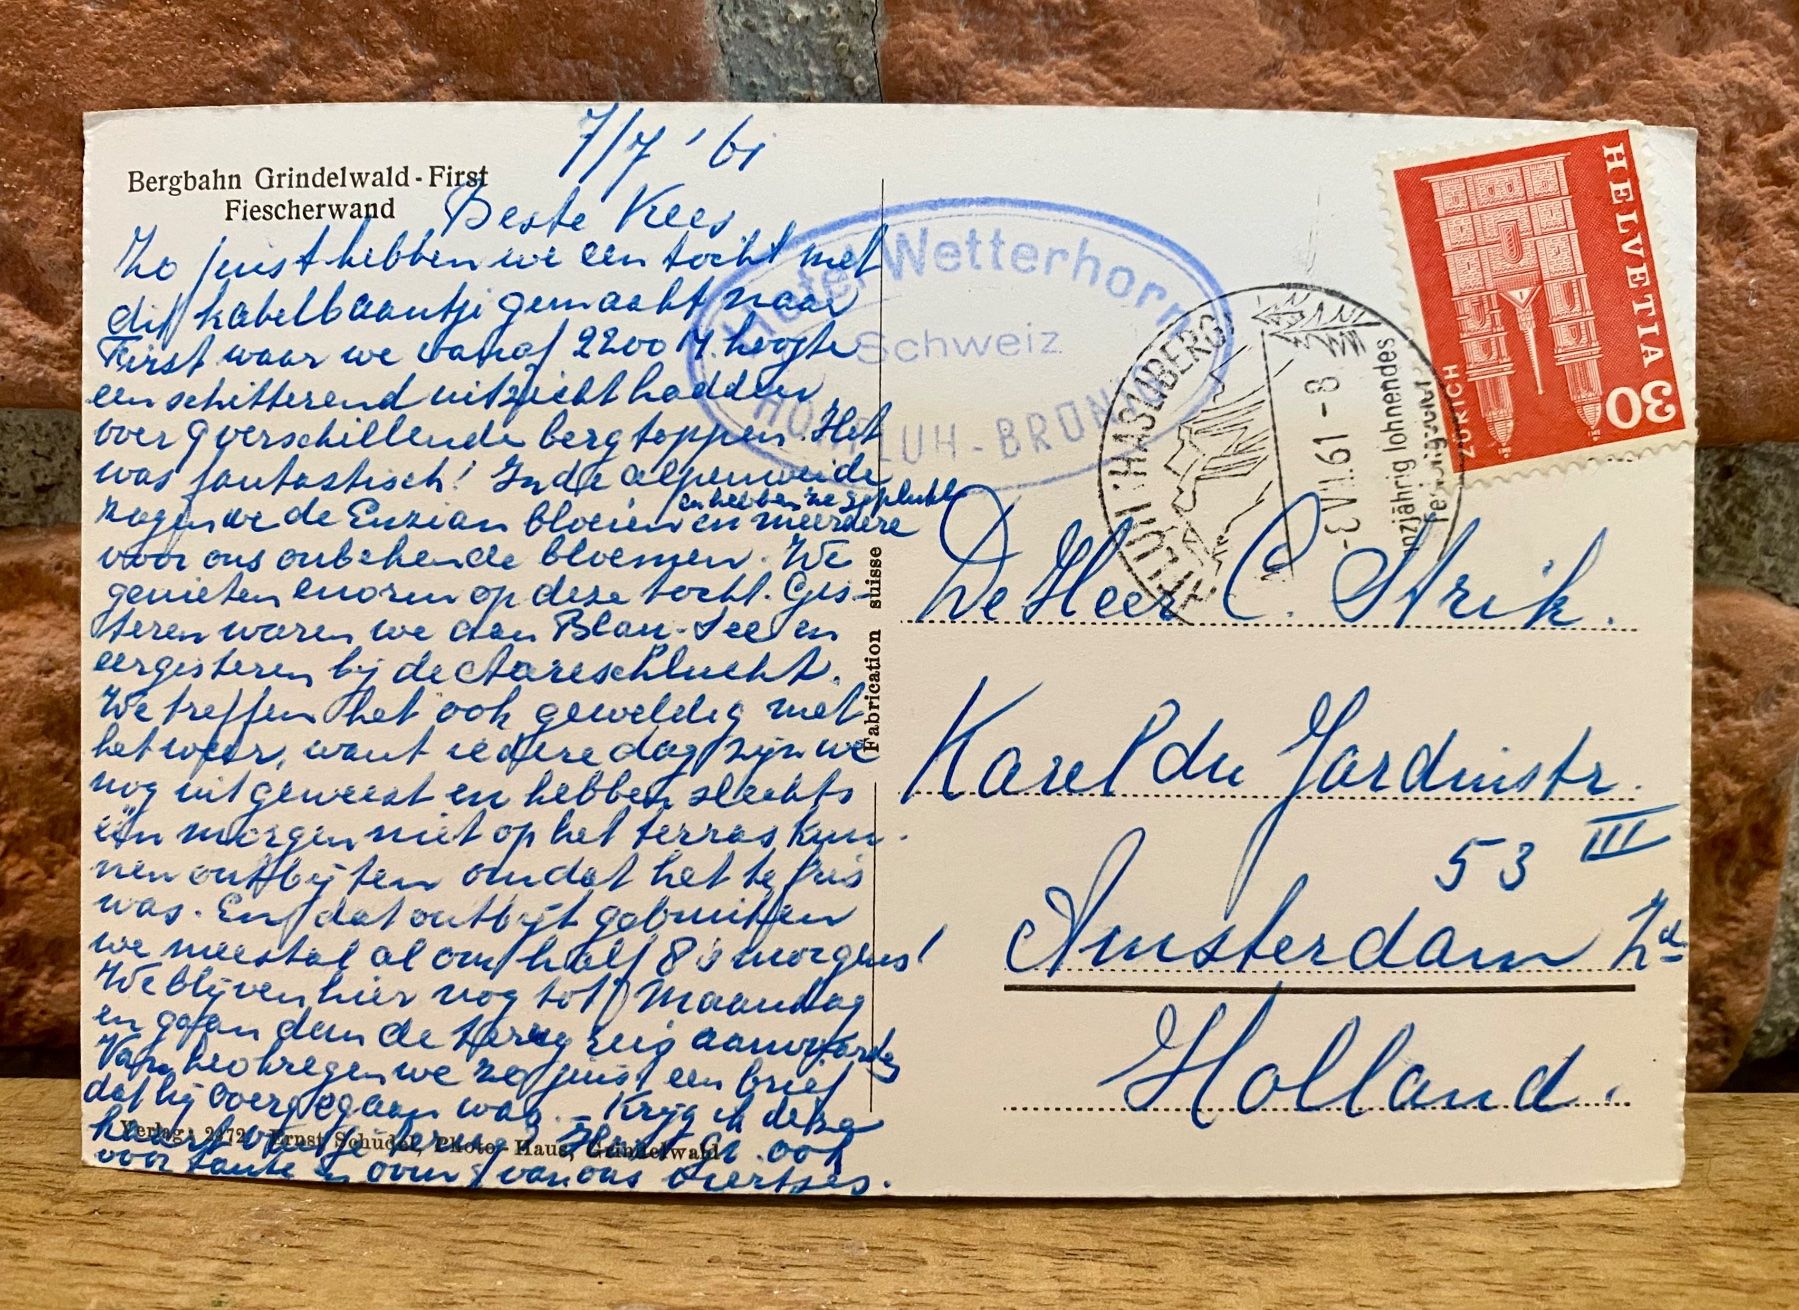 Bergbahn Grindelwald - First
Fiescherwand
7/7 '61
Beste Kees
Zo juist hebben we een tocht met
dit kabelbaantje gemaakt naar
First waar we vanaf 2200 M. hoogte
een schitterend uitzicht hadden
over 9 verschillende bergtoppen. Het
was fantastisch! In de alpenweide
en hebben ze geplukt
zagen we de Enzian bloeien en meerdere
voor ons onbekende bloemen. We
genieten enorm op deze tocht. Gis-
teren waren we aan Blau-See en
eergisteren bij de Aareschlucht.
We treffen het ook geweldig met
het weer, want iedere dag zijn we
nog uit geweest en hebben slechts
één morgen niet op het terras kun-
nen ontbijten omdat het te fris
was. En dat ontbijt gebruiken
we meestal al om half 8 's morgens!
We blijven hier nog tot Maandag
en gaan dan de terug reis aanvaarden
Van kregen we zo juist een brief
dat hij overgegaan was. - Krijg ik deze
kaart terug ook
voor tante en van ons
Verlag: Ernst Schudel, Photo-Haus, Grindelwald
Fabrication suisse
Hotel Wetterhorn
Schweiz
HOHFLUH-BRÜNIG
HOHFLUH HASLIBERG
-8.VII.61-8
ganzjährig lohnendes
Ferienziel
HELVETIA
30
ZÜRICH
De Heer C. Strik.
Karel du Jardinstr.
53 III
Amsterdam Zd
Holland.